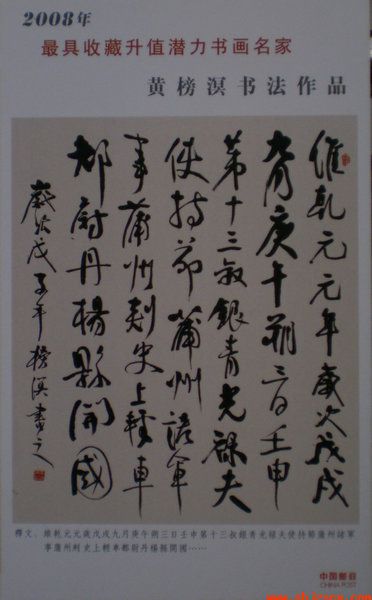 2008年
最具收藏升值潜力书画名家
黄榜溟书法作品
維乾元元年歲次戊戌
九月庚午朔三日壬申
第十三叔銀青光祿夫
使持節蒲州諸軍
事蒲州刺史上輕車
都尉丹楊縣開國
歲次戊子年榜溟書之
釋文：維乾元元歲戊戌九月庚午朔三日壬申第十三叔銀青光祿夫使持節蒲州諸軍
事蒲州刺史上輕車都尉丹楊縣開國……
中国邮政
CHINA POST